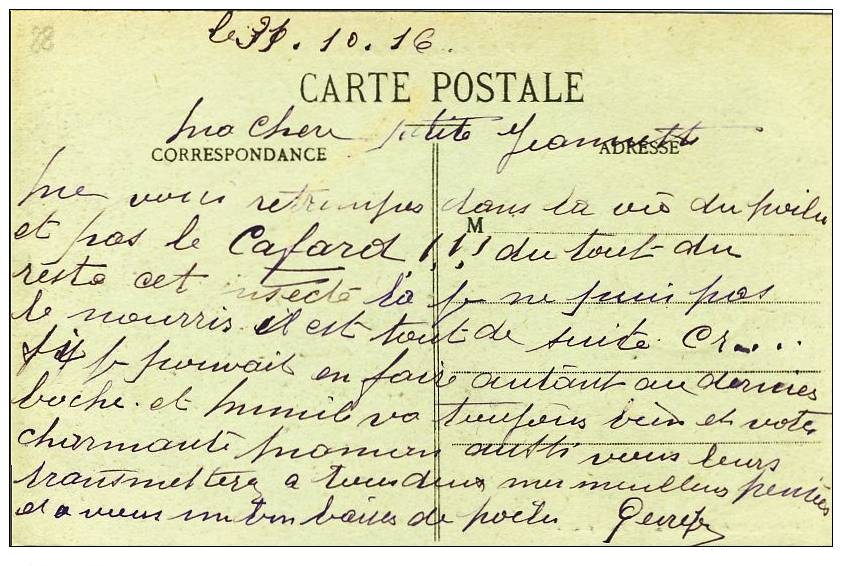 le 31.10.16.
CARTE POSTALE
Ma chere petite Jeannette
CORRESPONDANCE
ADRESSE
Me voici retrempes dans la vie du poilu
M
et pas le Cafard !!! du tout du
reste cet insecte là je ne puis pas
le nourris il est tout de suite Cr....
si je pouvait en faire autant au dernies
boche. et Mimile va toujours bien et votre
charmante maman aussi vous leurs
transmetterez a tous deux mes meilleurs pensées
et a vous un bon baiser de poilu